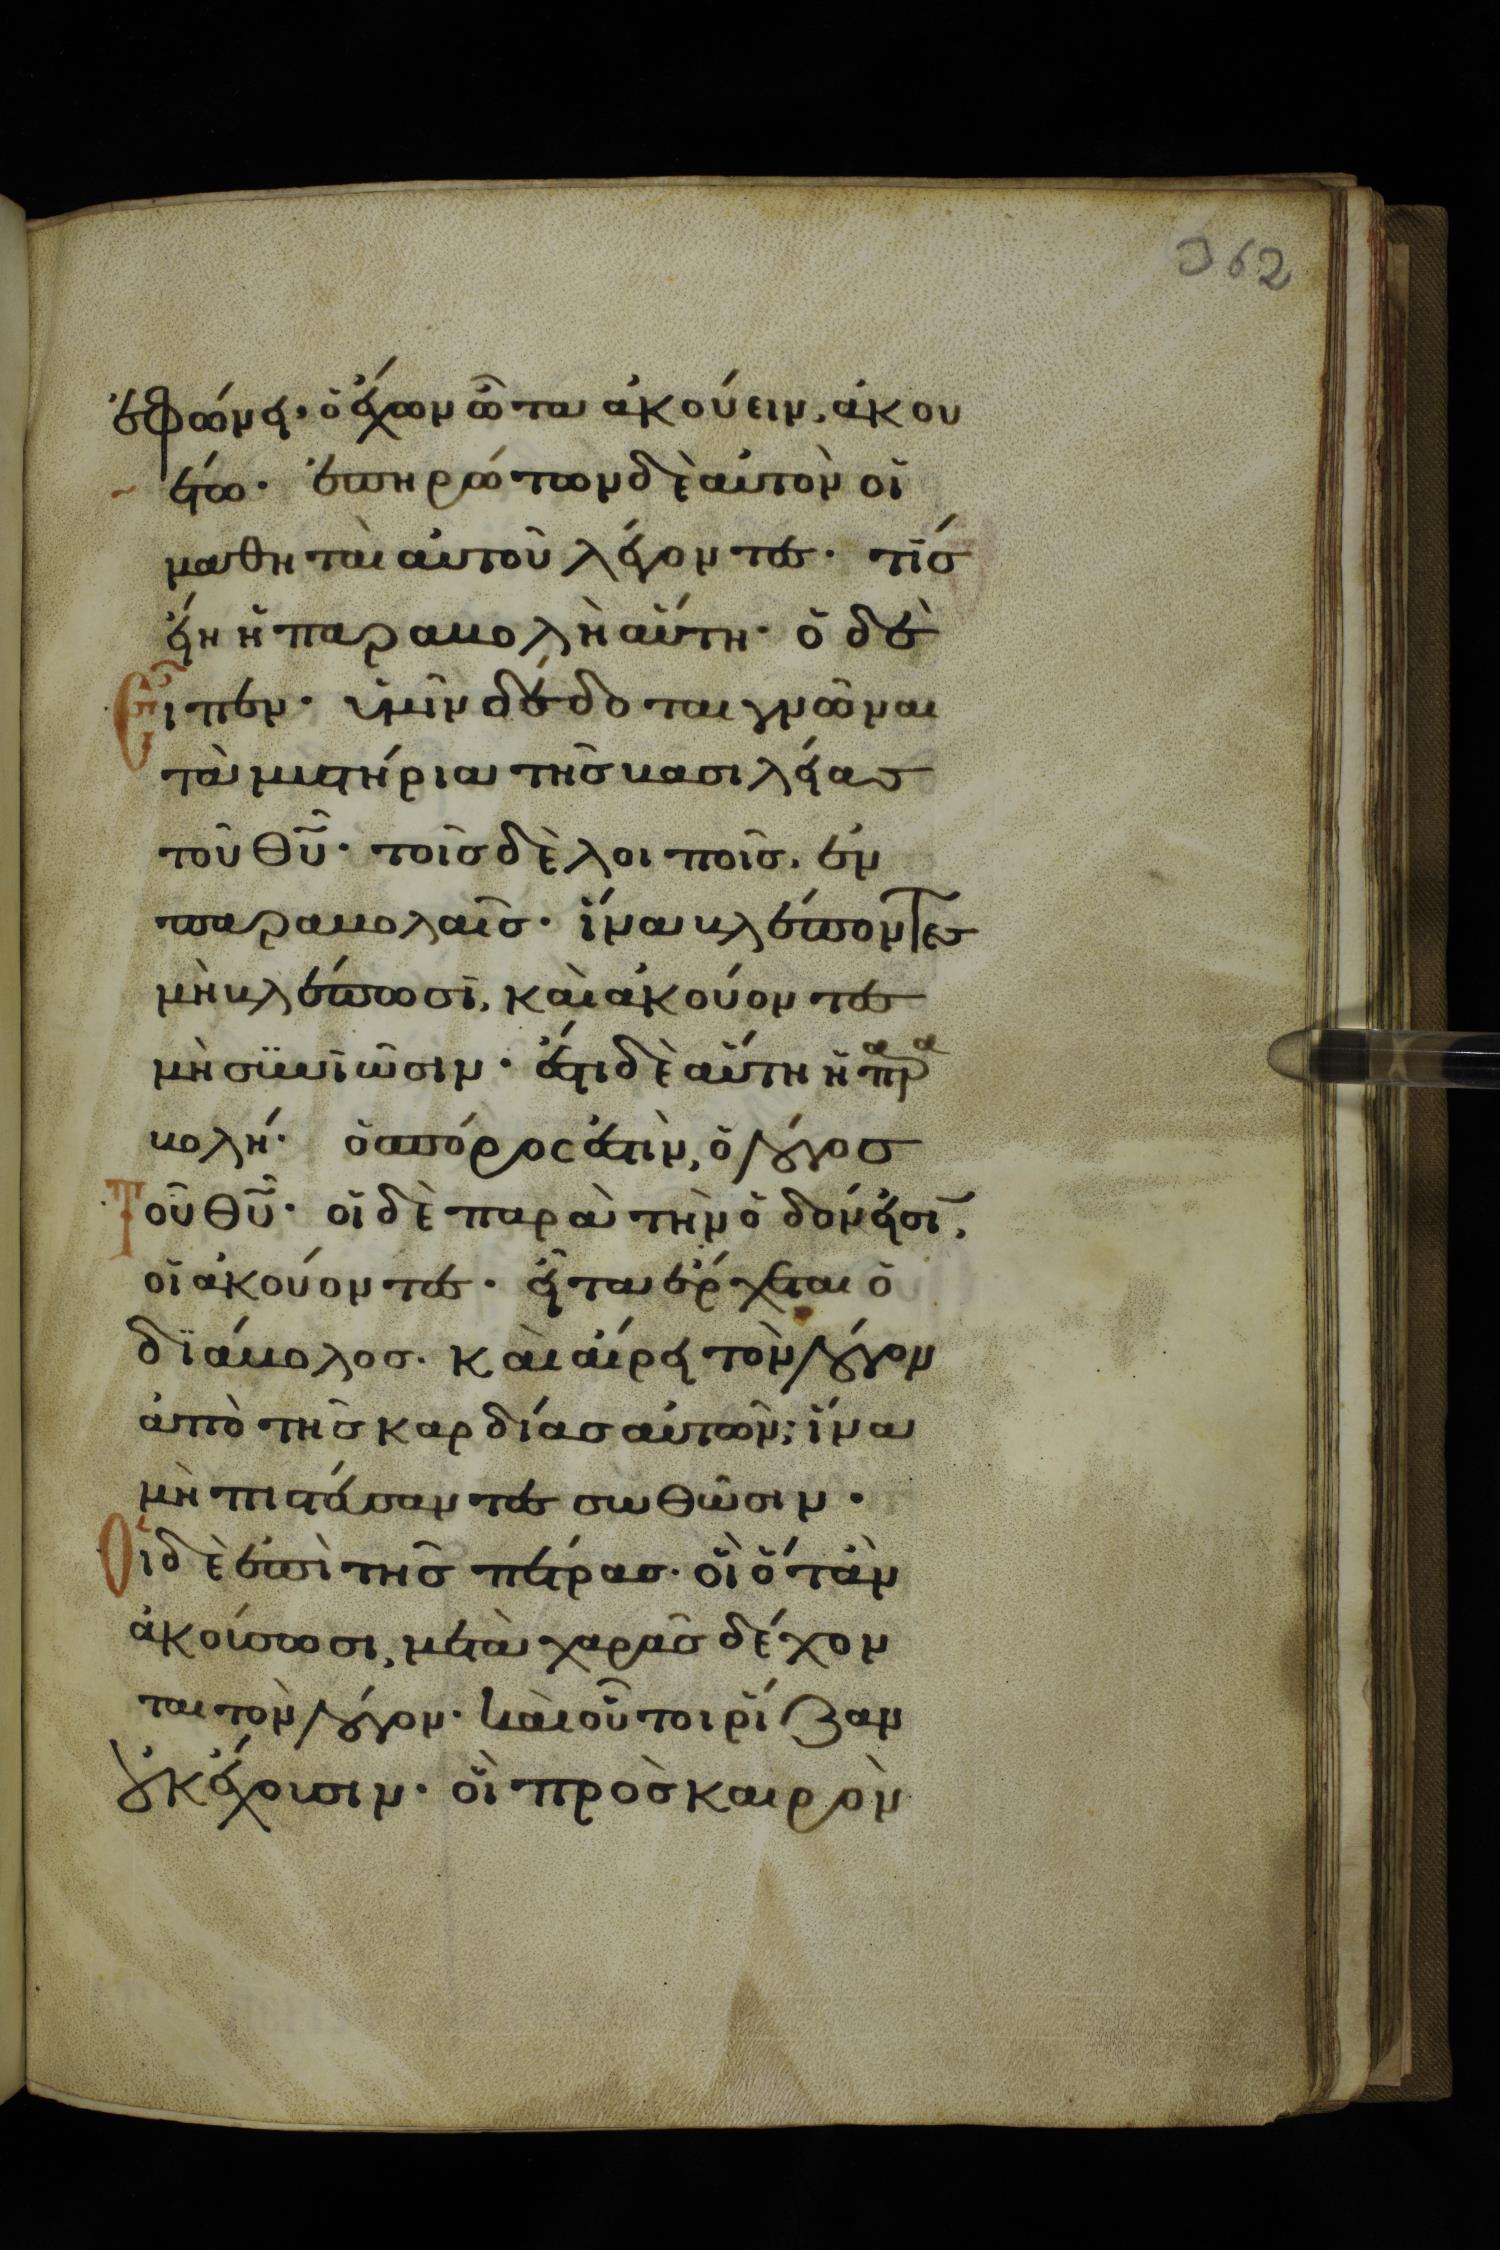 362
ἐφώνει· ὁ ἔχων ὦτα ἀκούειν, ἀκου
έτω· ἐπηρώτων δὲ αὐτὸν οἱ
μαθηταὶ αὐτοῦ λέγοντες· τίς
εἴη ἡ παραβολὴ αὕτη· ὁ δὲ
εἶπεν· ὑμῖν δέδοται γνῶναι
τὰ μυστήρια τῆς βασιλείας
τοῦ θ̅υ̅· τοῖς δὲ λοιποῖς, ἐν
παραβολαῖς· ἵνα βλέποντες
μὴ βλέπωσι, καὶ ἀκούοντες
μὴ συνϊῶσιν· ἔστι δὲ αὕτη ἡ παρα
βολή· ὁ σπόρος ἐστὶν, ὁ λόγος
τοῦ θ̅υ̅· οἱ δὲ παρὰ τὴν ὁδόν εἰσι,
οἱ ἀκούοντες· εἶτα ἔρχεται ὁ
διάβολος· καὶ αἴρει τὸν λόγον
ἀπὸ τῆς καρδίας αὐτῶν; ἵνα
μὴ πιστεύσαντες σωθῶσιν·
Οἱ δὲ ἐπὶ τῆς πέτρας· οἳ ὅταν
ἀκούσωσι, μετὰ χαρᾶς δέχον
ται τὸν λόγον· καὶ οὗτοι ῥίζαν
οὐκ ἔχουσιν· οἳ πρὸς καιρὸν